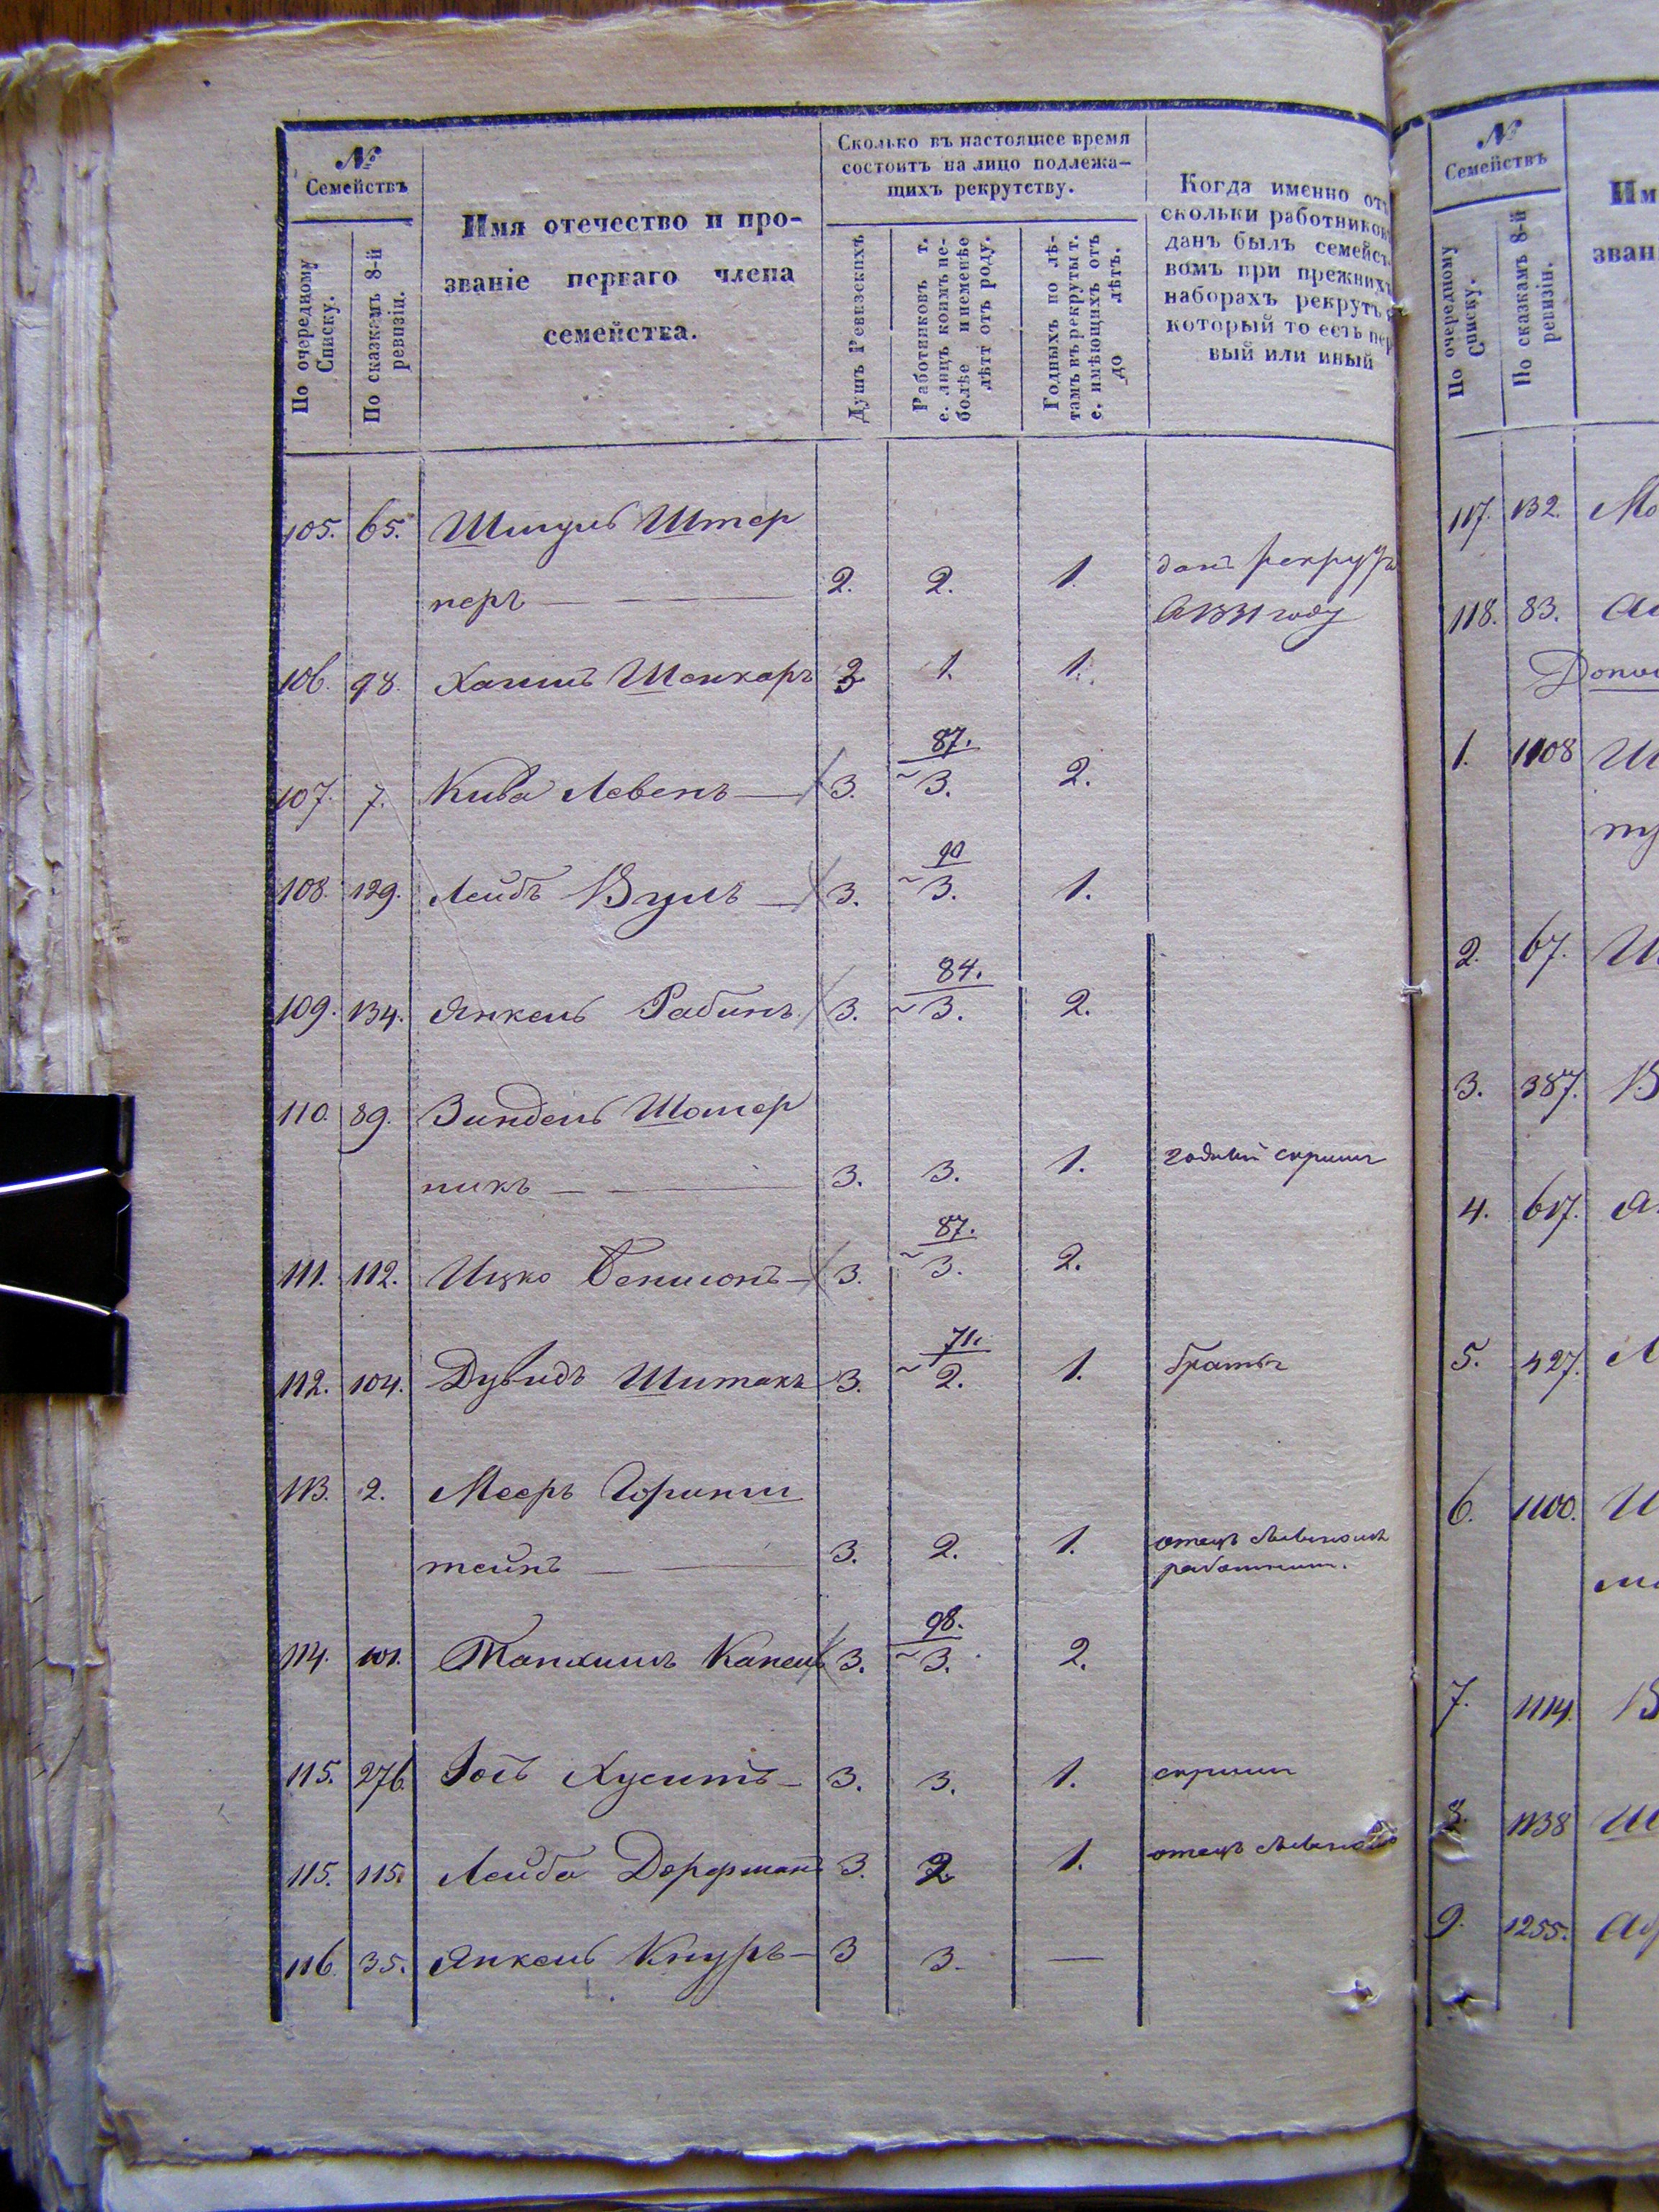 №
Семействъ
По очередному Списку.
По сказкамъ 8-й ревизіи.
Имя отечество и про-
званіе перваго члена
семейства.
Сколько въ настоящее время
состоитъ на лицо подлежа-
щихъ рекрутству.
Душъ Ревизскихъ
Работниковъ т.
е. лицъ коимъ не-
болѣе и неменѣе
лѣтт отъ роду.
Годныхъ по лѣ-
тамъ къ рекруты т.
е. имѣющихъ отъ
до лѣтъ.
Когда именно отъ
скольки работников
данъ былъ семейст-
вомъ при прежнихъ
наборахъ рекрутъ
который то есть пер
вый или иный
105. 65. Шмуль Штер
перъ 2. 2. 1. данъ рекрутъ
в 1831 году
106. 98. Хаимъ Шенкаръ 3 1. 1.
87.
107. 7. Кива Левенъ 3. 3. 2.
90
108. 129. Лейбъ Вулъ 3. 3. 1.
84.
109. 134. Янкель Рабинъ 3. 3. 2.
110. 89. Зиндель Шомер
никъ 3. 3. 1. годный
87.
111. 112. Ицко Бенионъ 3. 3. 2.
71.
112. 104. Дувидъ Шитакъ 3. 2. 1. братья
113. 2. Мееръ Горинш
тейнъ 3. 2. 1. отецъ
98.
114. 101. Танхимъ Капель 3. 3. 2.
115. 276. Іосъ Хуситъ 3. 3. 1.
115. 115. Лейба Дорфманъ 3. 2 1. отецъ
116. 35. Янкель Кнуръ 3 3. —
№
Семействъ
По очередному Списку.
По сказкамъ 8-й ревизіи.
Им
зван
117. 132. Мо
118. 83.
1. 1108 Ш
2. 67.
3. 387. В
4. 617. Я
5. 427. Л
6. 1100.
7. 1114. В
8. 1138 Ш
9. 1255.